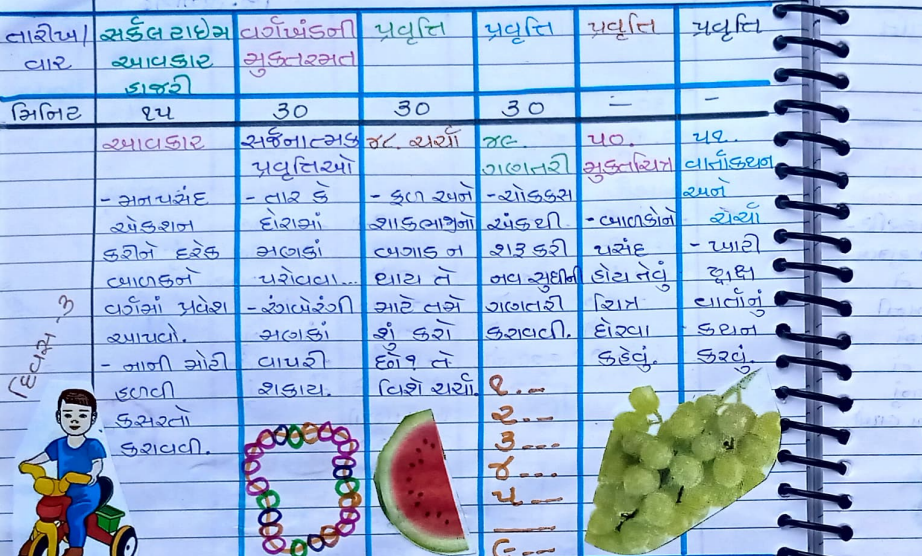 તારીખ/
વાર
સર્કલ ટાઇમ
આવકાર
હાજરી
વર્ગખંડની
મુક્તરમત
પ્રવૃત્તિ
પ્રવૃત્તિ
પ્રવૃત્તિ
પ્રવૃત્તિ
મિનિટ
૧૫
30
30
30
-
-
દિવસ - 3
આવકાર
- મનપસંદ
એકશન
કરીને દરેક
બાળકને
વર્ગમાં પ્રવેશ
આપવો.
- નાની મોટી
હળવી
કસરતો
કરાવવી.
સર્જનાત્મક
પ્રવૃત્તિઓ
- તાર કે
દોરામાં
મણકાં
પરોવવા...
- રંગબેરંગી
મણકાં
વાપરી
શકાય.
૪૮. ચર્ચા
- ફળ અને
શાકભાજીનો
બગાડ ન
થાય તે
માટે તમે
શું કરો
છો? તે
વિશે ચર્ચા.
૪૯.
ગણતરી
- ચોકકસ
અંકથી
શરૂ કરી
નવ સુધીની
ગણતરી
કરાવવી.
૧...
૨...
૩...
૪...
૫...
૯...
૫૦.
મુક્તચિત્ર
- બાળકોને
પસંદ
હોય તેવું
ચિત્ર
દોરવા
કહેવું.
૫૧.
વાર્તાકથન
અને
ચર્ચા
- ખાટી
દ્રાક્ષ
વાર્તાનું
કથન
કરવું.